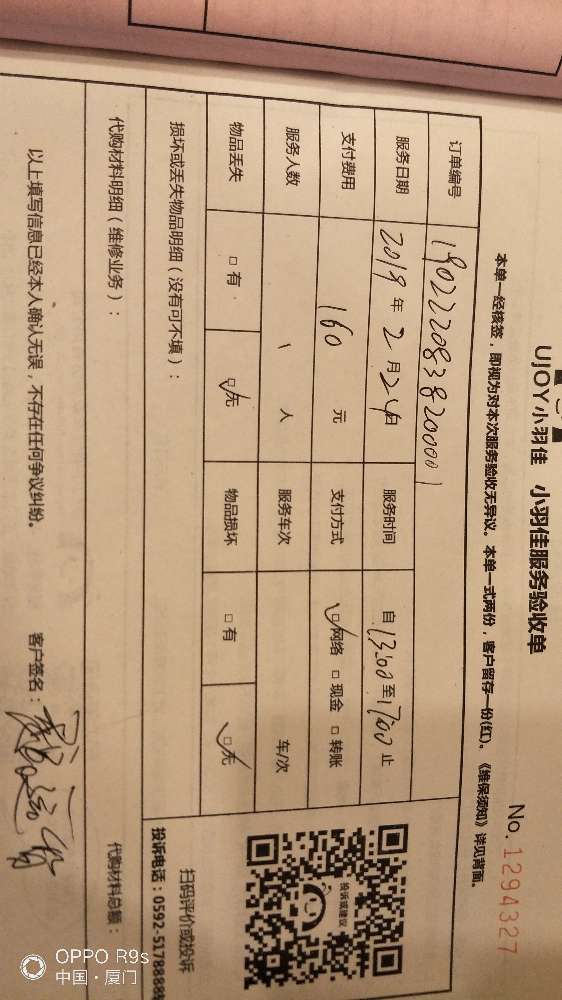 UJOY小羽佳 小羽佳服务验收单
No. 1294327
本单一经核签，即视为对本次服务验收无异议。本单一式两份，客户留存一份(红)。《维保须知》详见背面。
订单编号 1902220838200001
服务日期 2019 年 2 月 24 日 服务时间 自 13:00 至 17:00 止
支付费用 160 元 支付方式 ☑网络 □现金 □转账
服务人数 1 人 服务车次 车/次
物品丢失 □有 ☑无 物品损坏 □有 ☑无
损坏或丢失物品明细（没有可不填）：
代购材料明细（维修业务）： 代购材料总额：
以上填写信息已经本人确认无误，不存在任何争议纠纷。 客户签名：
投诉或建议
扫码评价或投诉
投诉电话：0592-5178888
OPPO R9s
中国·厦门